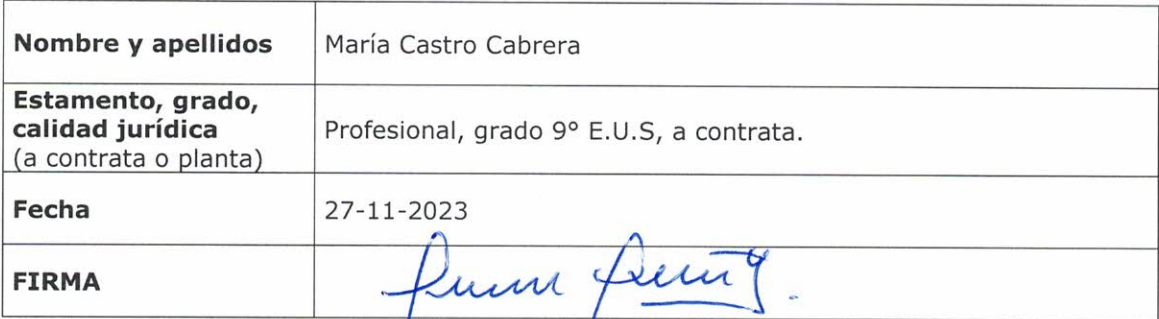 Nombre y apellidos
María Castro Cabrera
Estamento, grado,
calidad jurídica
(a contrata o planta)
Profesional, grado 9° E.U.S, a contrata.
Fecha
27-11-2023
FIRMA